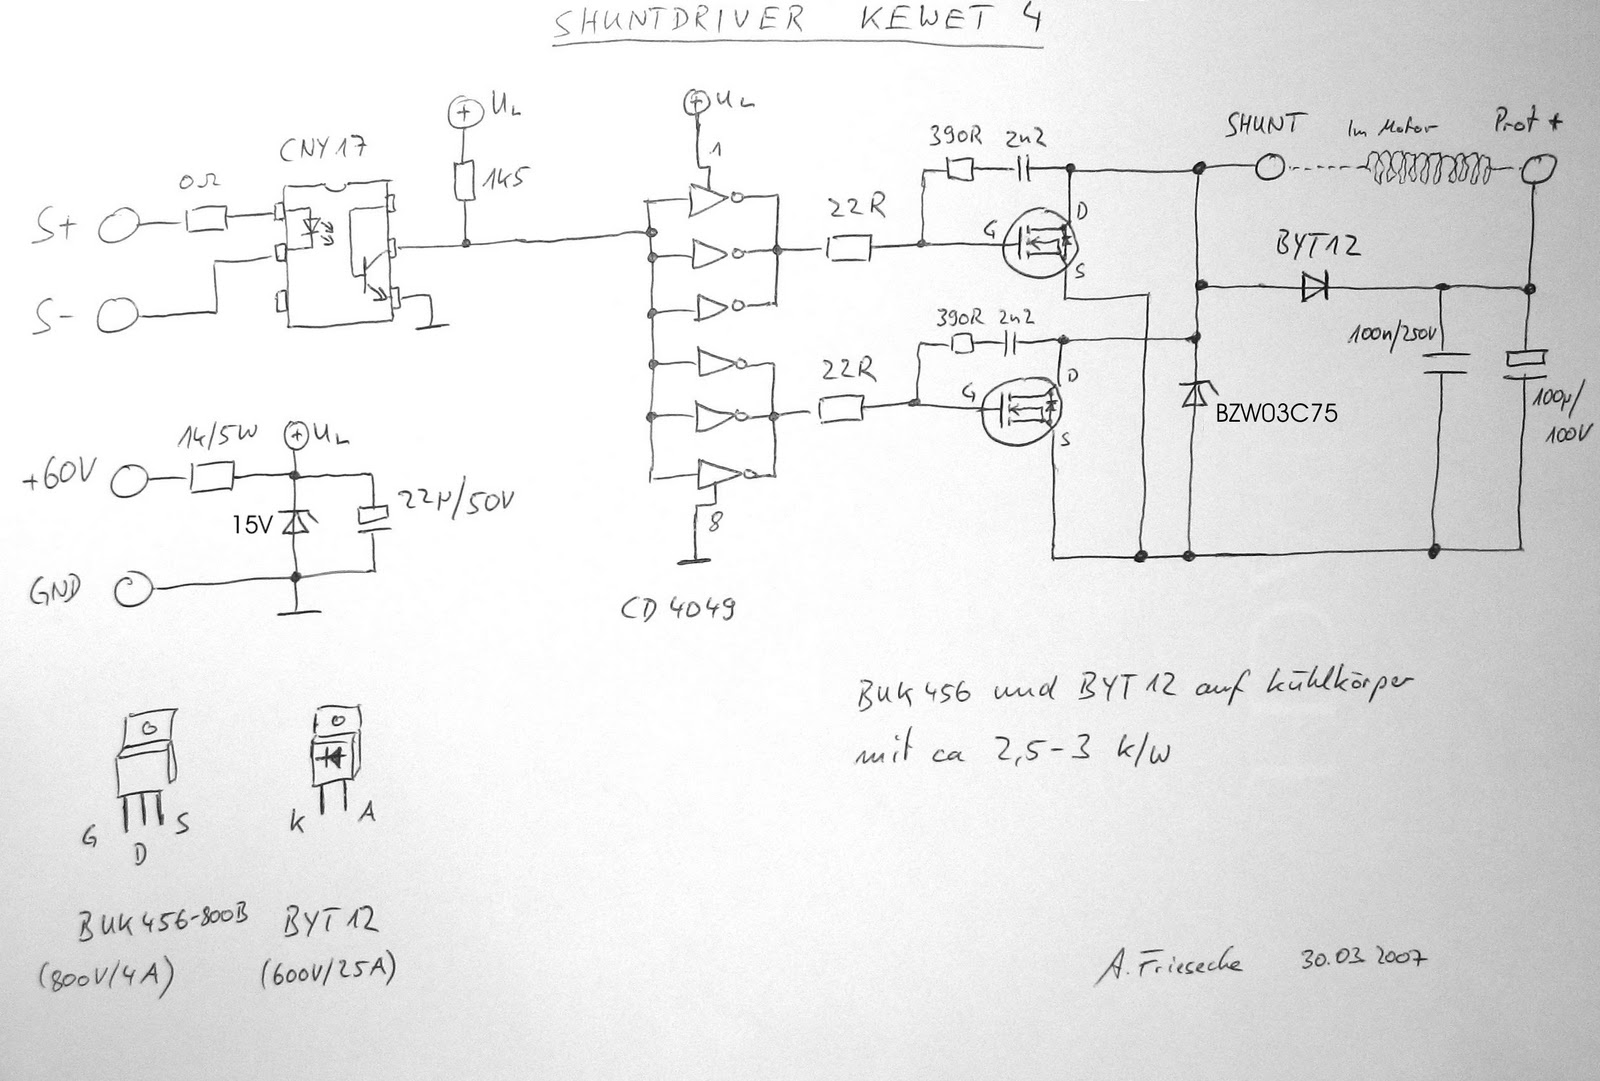 SHUNTDRIVER KEWET 4
S+
0Ω
CNY17
S-
⊕ UL
1K5
⊕ UL
1
8
CD 4049
22R
390R 2n2
G
D
S
22R
390R 2n2
G
D
S
SHUNT
Im Motor
Prot +
BYT12
100n/250V
100µ/
100V
BZW03C75
+60V
1K/5W
⊕ UL
15V
22µ/50V
GND
BUK456 und BYT12 auf Kühlkörper
mit ca 2,5-3 K/W
G
D
S
K
A
BUK456-800B
(800V/4A)
BYT12
(600V/25A)
A. Friesecke 30.03.2007